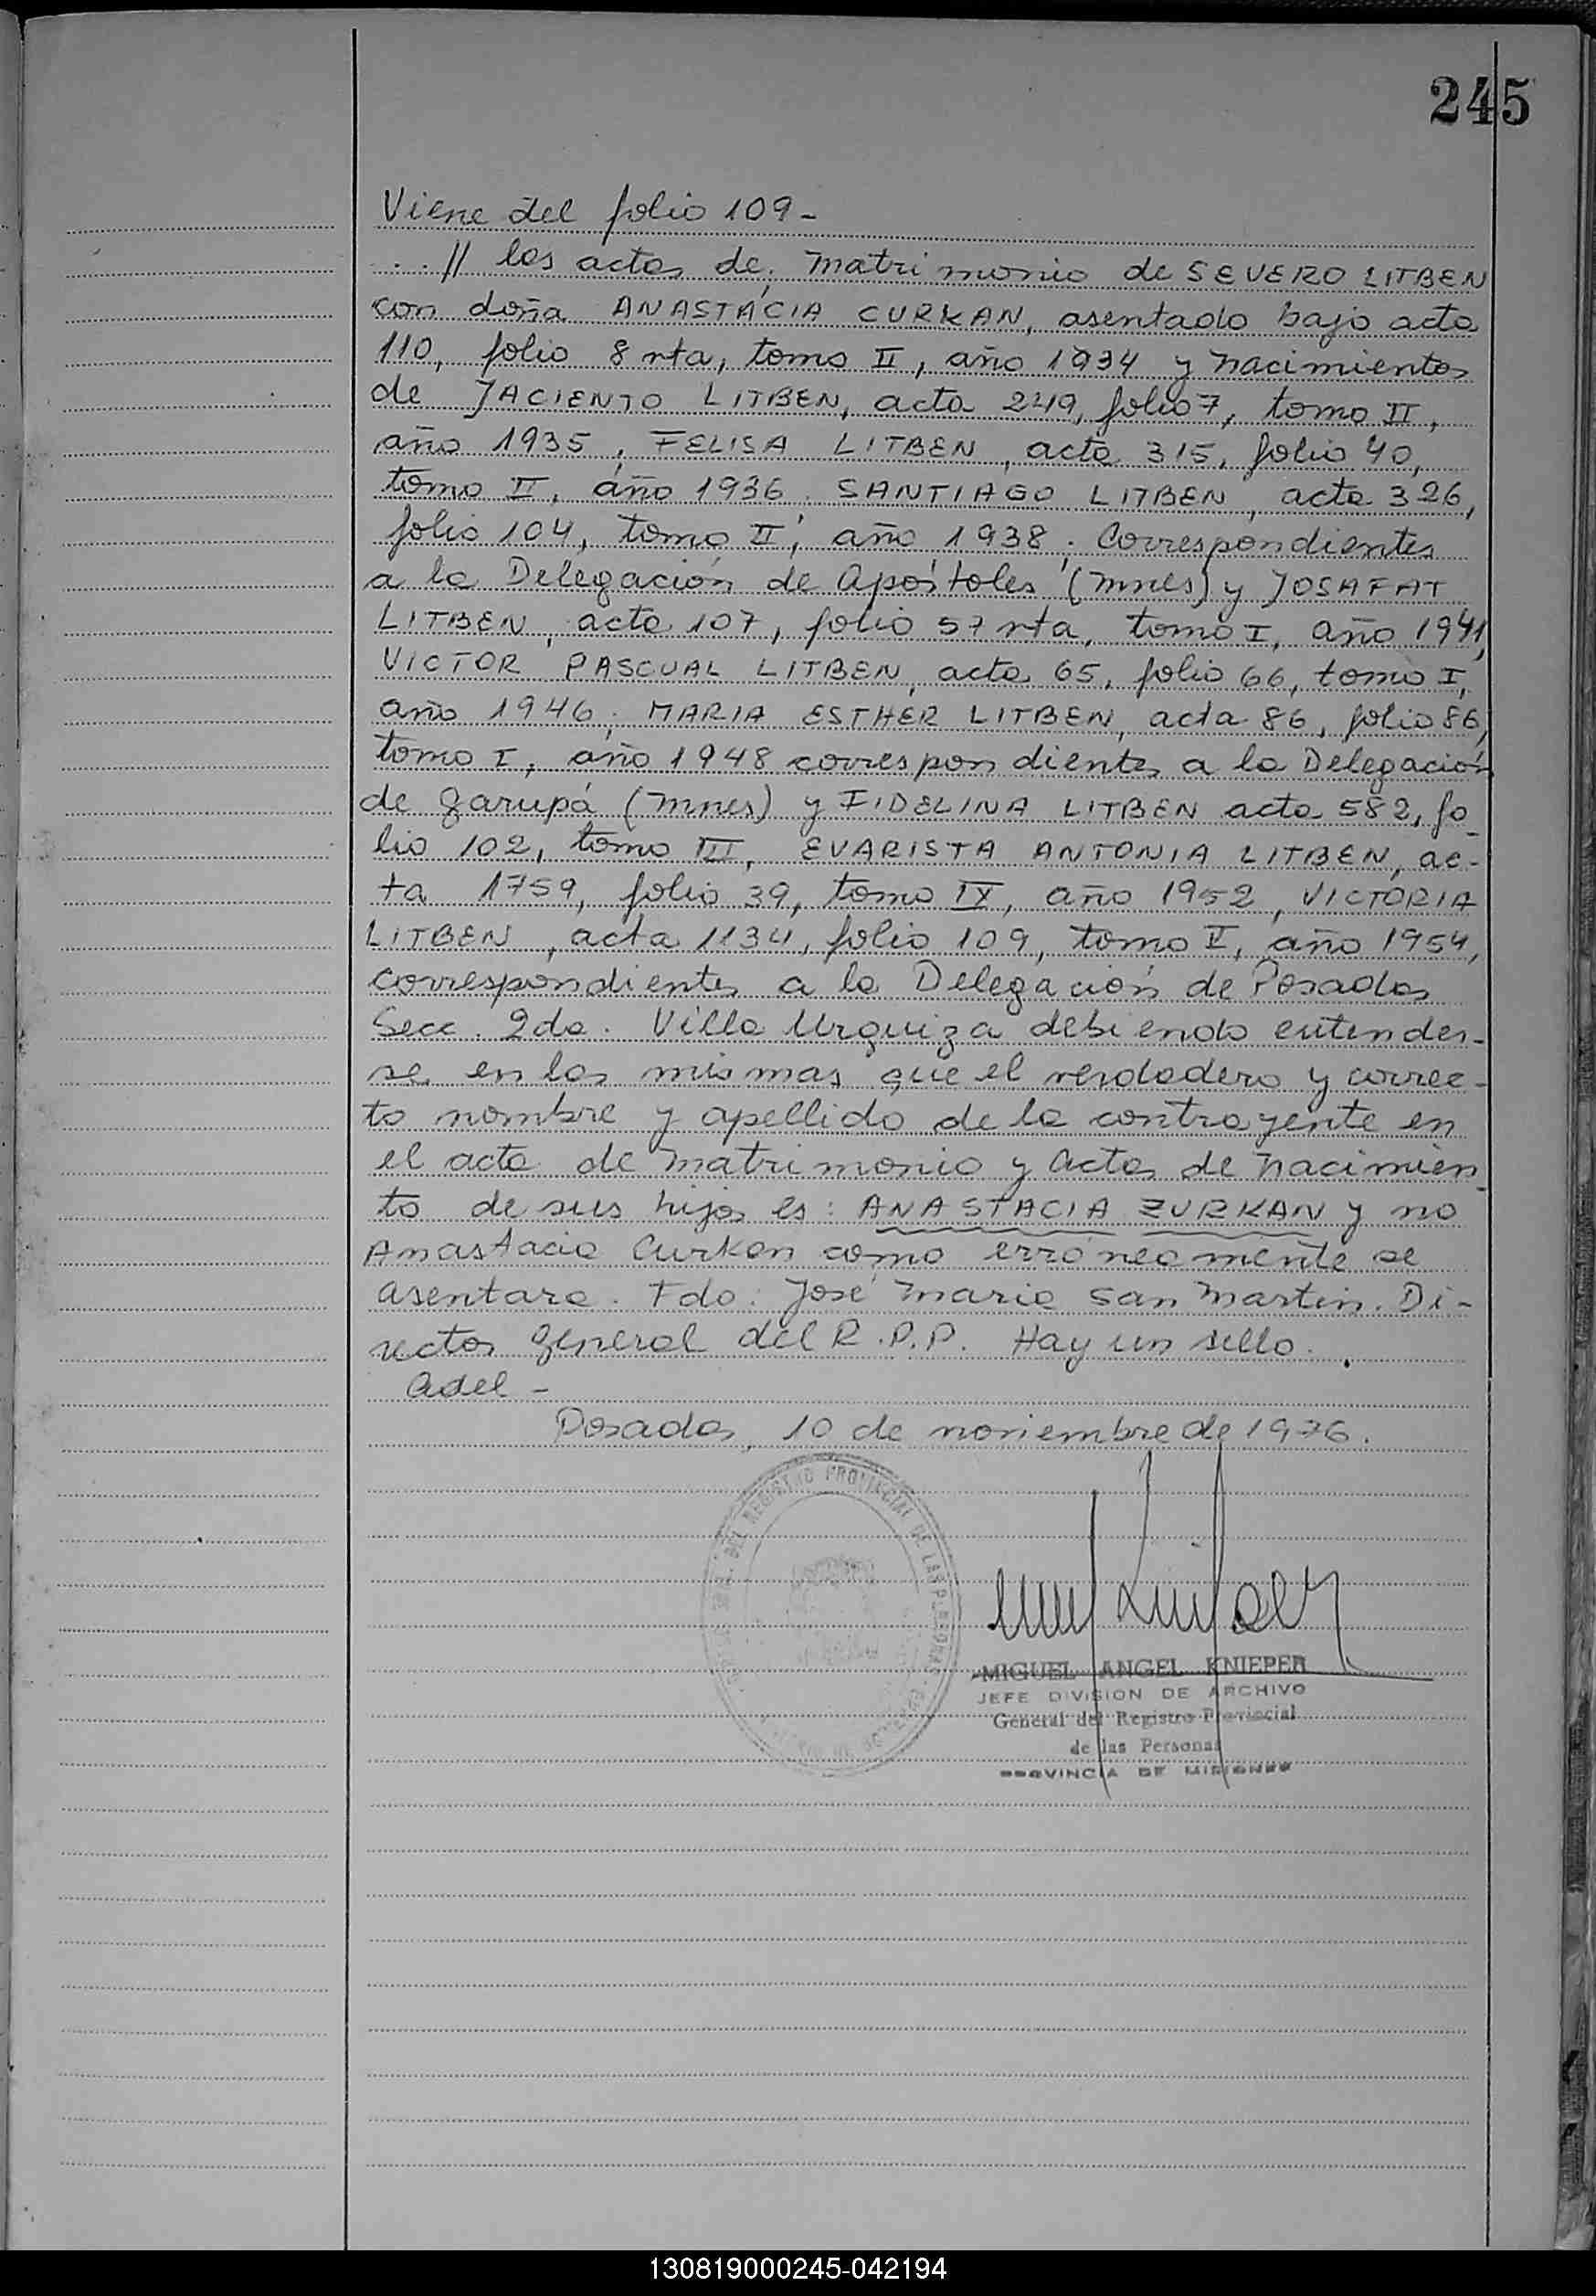 245
Viene del folio 109-
..// las actas de: matrimonio de SEVERO LITBEN
con doña ANASTACIA CURKAN, asentado bajo acta
110, folio 8 vta, tomo II, año 1934 y nacimientos
de JACIENTO LITBEN, acta 249, folio 7, tomo II,
año 1935, FELISA LITBEN, acta 315, folio 40,
tomo II, año 1936. SANTIAGO LITBEN, acta 326,
folio 104, tomo II, año 1938; Correspondientes
a la Delegación de Apóstoles (Mnes) y JOSAFAT
LITBEN, acta 107, folio 57 vta, tomo I, año 1941,
VICTOR PASCUAL LITBEN, acta 65, folio 66, tomo I,
año 1946; MARIA ESTHER LITBEN, acta 86, folio 86,
tomo I, año 1948 correspondientes a la Delegación
de Garupá (Mnes) y FIDELINA LITBEN acta 582, fo-
lio 102, tomo III, EVARISTA ANTONIA LITBEN, ac-
ta 1759, folio 39, tomo IX, año 1952, VICTORIA
LITBEN, acta 1134, folio 109, tomo V, año 1954,
correspondientes a la Delegación de Posadas
Secc. 2da. Villa Urquiza debiendo entender-
se en las mismas que el verdadero y correc-
to nombre y apellido de la contrayente en
el acta de matrimonio y actas de nacimien-
to de sus hijos es: ANASTACIA ZURKAN y no
Anastacia Curkan como erróneamente se
asentara. Fdo: José Maria San Martin. Di-
rector General del R.P.P. Hay un sello.
adel-
Posadas, 10 de noviembre de 1976.
DEL REGISTRO PROVINCIAL DE LAS PERSONAS
MIGUEL ANGEL KNIEPER
JEFE DIVISION DE ARCHIVO
General del Registro Provincial
de las Personas
PROVINCIA DE MISIONES
130819000245-042194